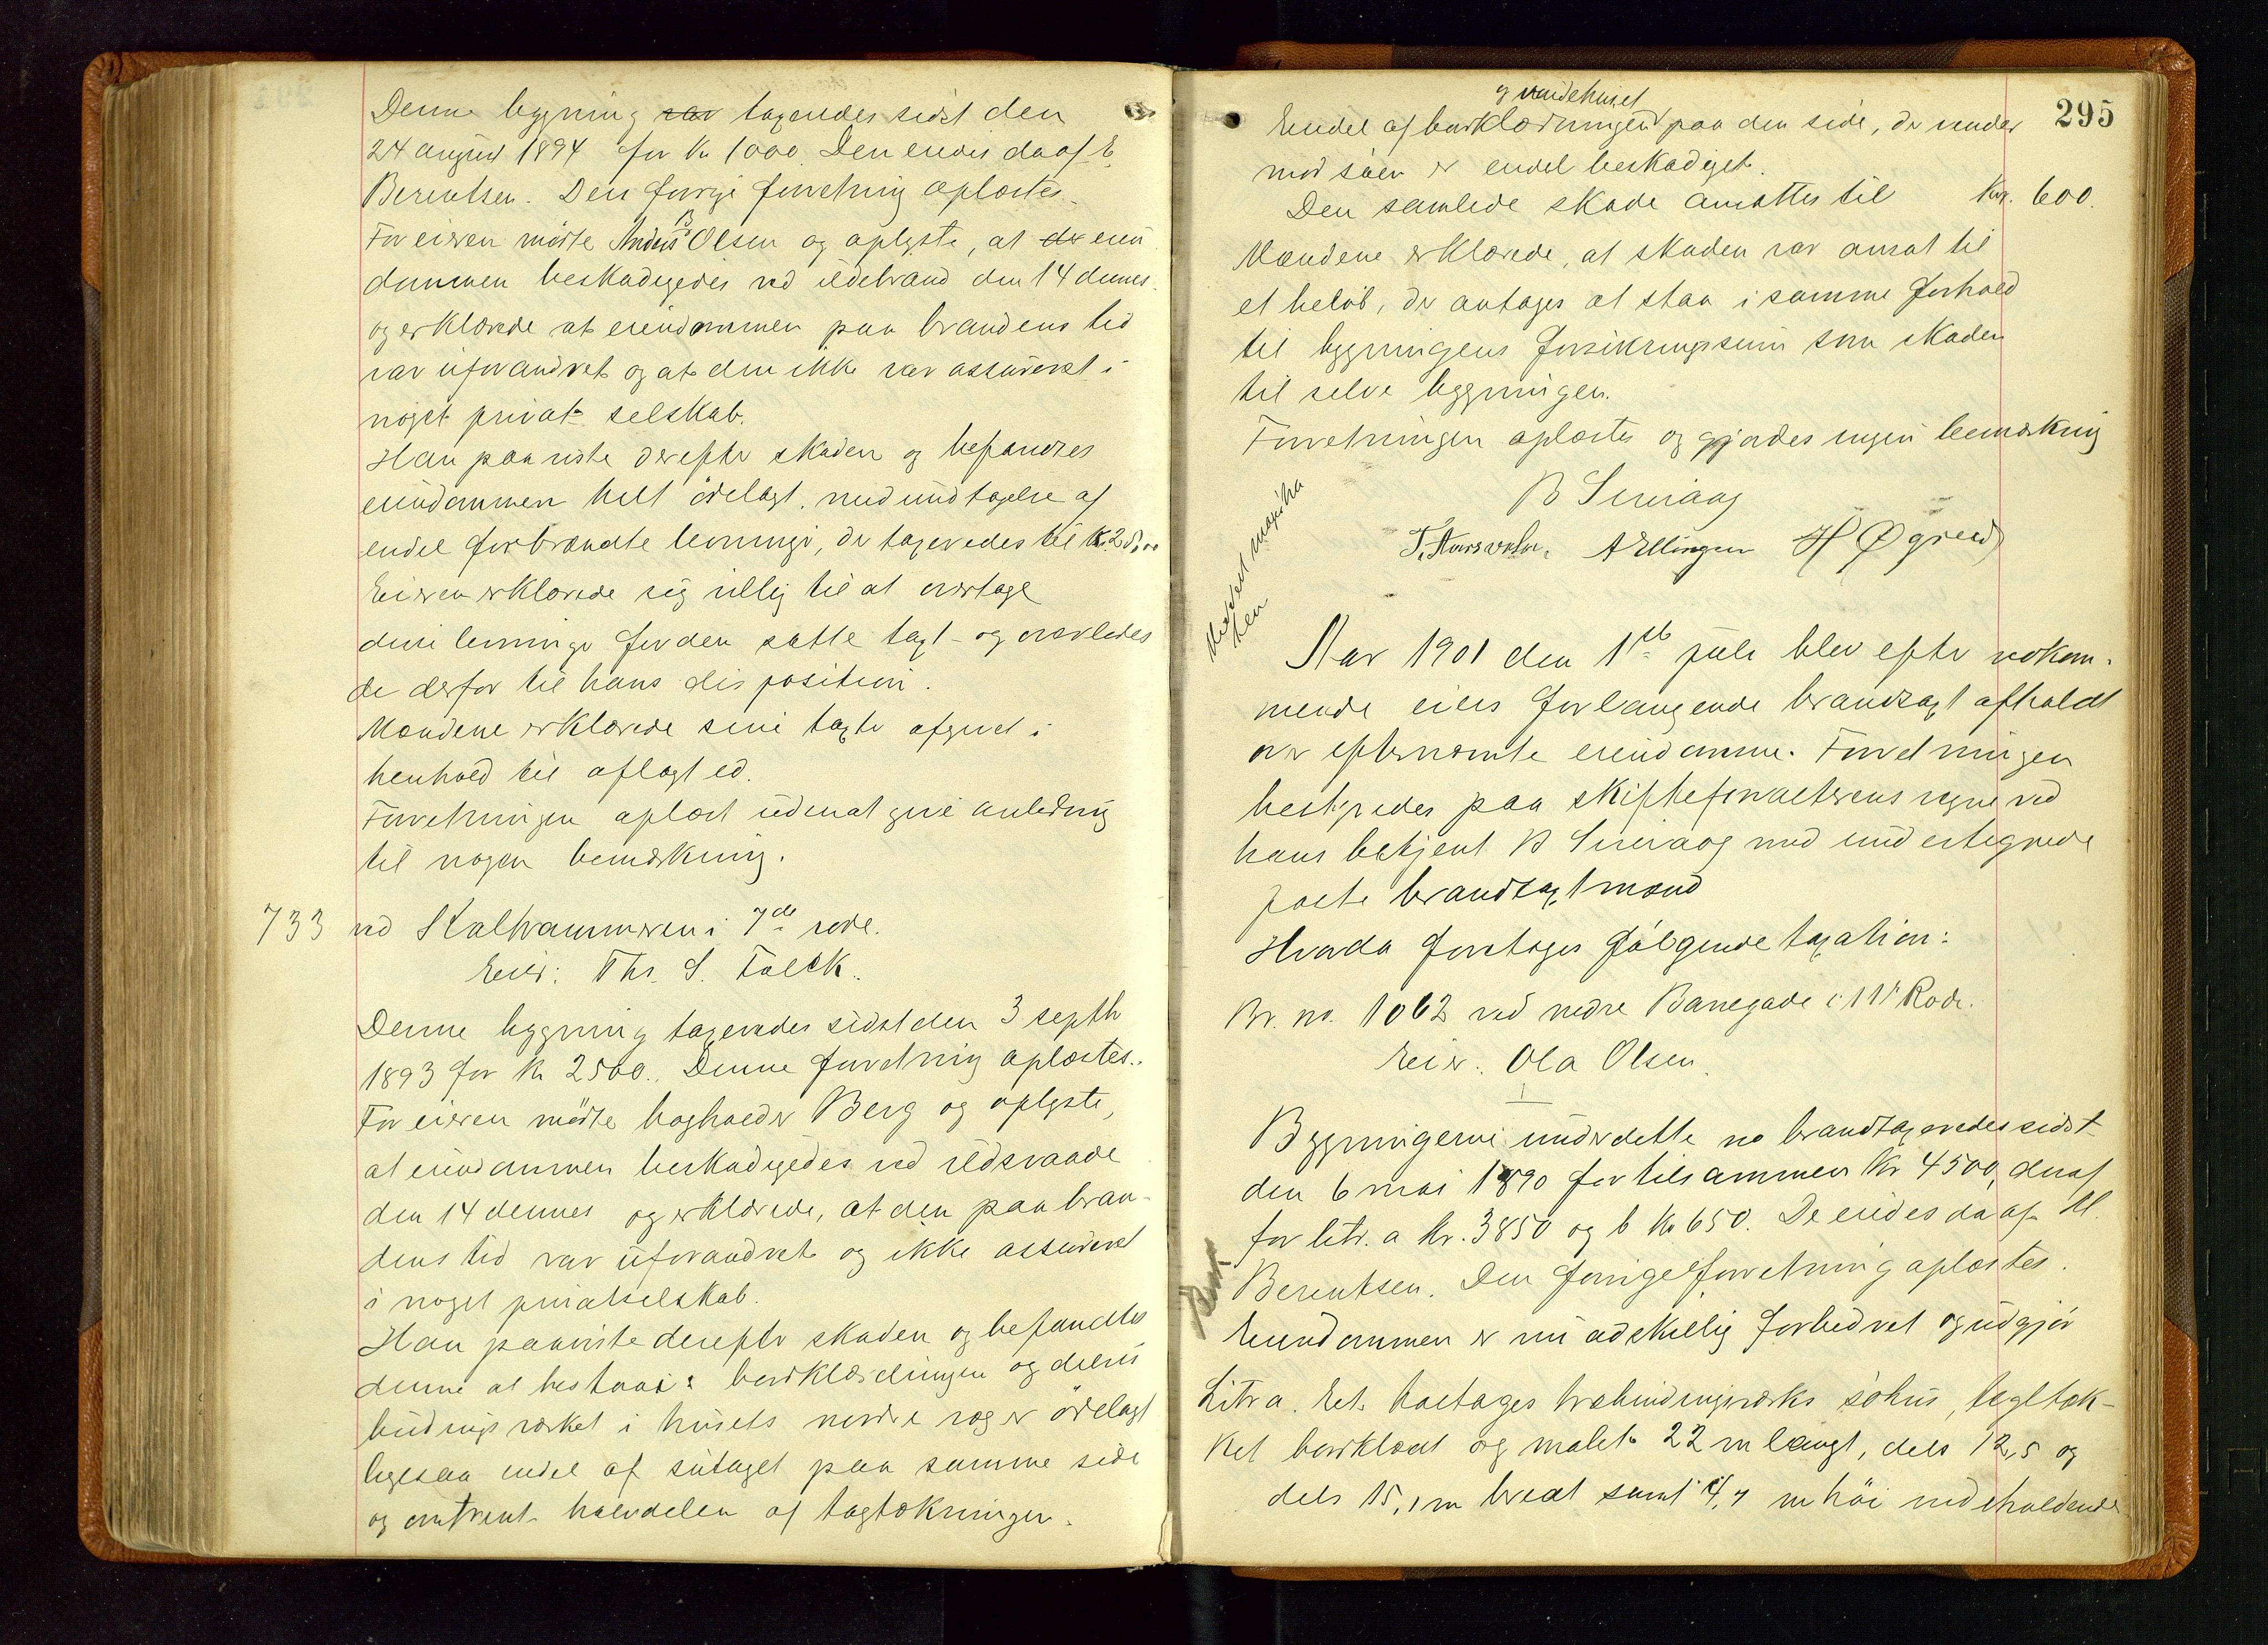 Denne bygning var taxeredes sidst den
24 august 1894 for Kr 1000. Den eiedes da af E.
Berentsen. Den forrige forretning oplæstes.
For eieren mødte Anders B Olsen og oplyste, at der eien
dommen beskadigedes ved ildebrand den 14 dennes.
og erklærede at eiendommen paa brandens tid
var uforandret og at den ikke var assureret i
noget privat selskab.
Han paaviste derefter skaden og befandtes
eiendommen helt ødelagt, med undtagelse af
endel forbrændte levninger, der taxeredes til Kr.
Eieren erklærede sig villig til at overtage
disse levninger for den satte taxt og overlodes
de derfor til hans disposition.
Mændene erklærede sine taxter afgivet i
henhold til aflagt ed.
Forretningen oplæst uden at give anledning
til nogen bemærkning.
733 ved Kalhammeren i 7de rode.
Eier: Ths. S. Falck.
Denne bygning taxeredes sidst den 3 septbr
1893 for Kr 2500. Denne forretning oplæstes.
For eieren mødte bogholder Berg og oplyste,
at eiendommen beskadigedes ved ildsvaade
den 14 dennes og erklærede, at den paa bran-
dens tid var uforandret og ikke assureret
i noget privatselskab.
Han paaviste derefter skaden og befandtes
denne at bestaa i: bordklædningen og delvis
bindingsværket i husets nordre væg er ødelagt
ligesaa endel af sutaget paa samme side
og omtrent halvdelen af tagtækningen.
295
og vindehuset
Endel af bordklædningen paa den side, der vender
mod søen er endel beskadiget.
Den samlede skade ansattes til Kr. 600.
Mændene erklærede, at skaden var ansat til
et beløb, der antages at staa i samme forhold
til bygningens forsikringssum som skaden
til selve bygningen.
Forretningen oplæstes og gjordes ingen bemærkning
B Sunaag
A Ellingsen H Øgreid
Aar 1901 den 1ste juli blev efter vedkom-
mende eiers forlangende brandtaxt afholdt
over efternævnte eiendomme. Forretningen
bestyredes paa skifteforvalterens vegne ved
hans betjent B Sunaag med undertegnede
faste brandtaxtmænd
Hvorda foretages følgende taxation:
Br. no. 1062 ved nedre Banegade i 11te Rode.
Eier: Ola Olsen.
Bygningerne under dette no brandtaxeredes sidst
den 6 mai 1890 for tilsammen Kr 4500, deraf
for litr. a Kr. 3850 og b Kr 650. De eiedes da af M.
Berentsen. Den forrige forretning oplæstes.
Eiendommen er nu adskillig forbedret og udgjør
Litr a. Et toetages træbindingsværks søhus, tegltæk-
ket bordklædt og malet 22 m langt, dels 12,5 og
dels 15,1 m bredt samt 4,7 m høi indeholdende